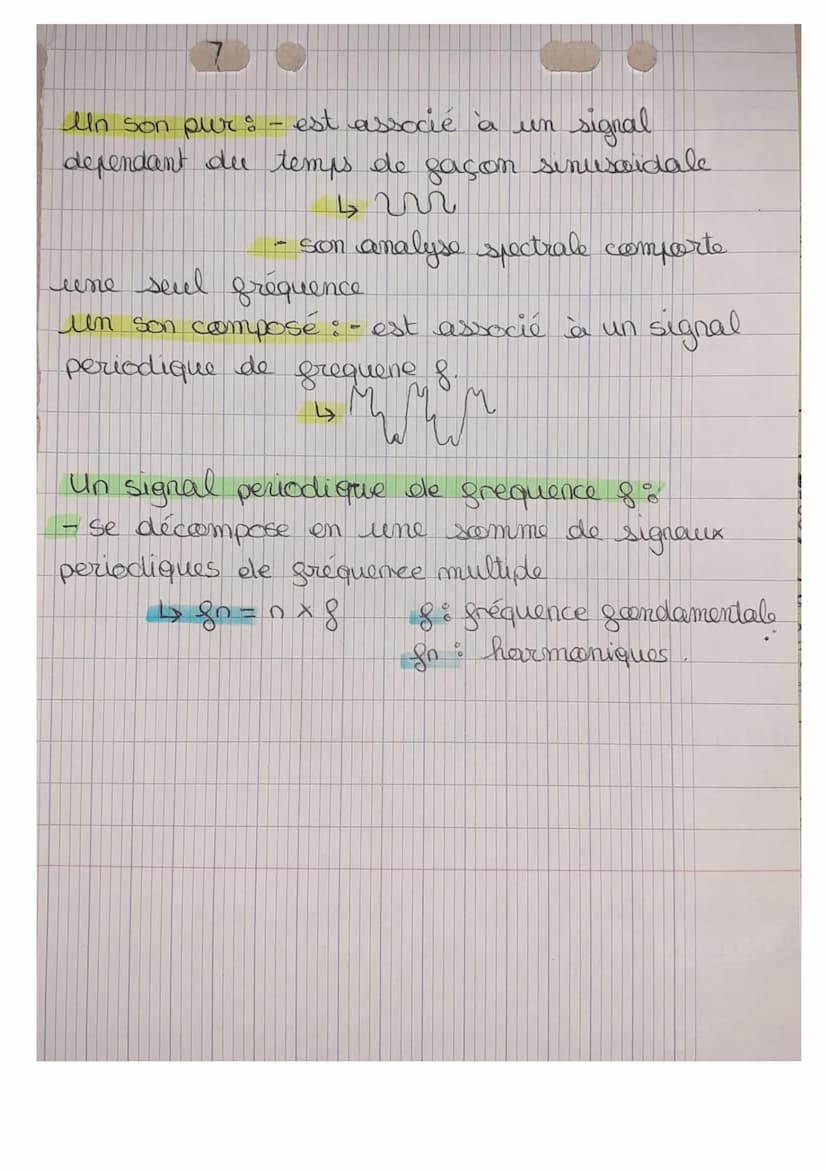 7
Un son pur : - est associé à un signal
dependant du temps de façon sinusoidale
↳
- son analyse spectrale comporte
une seul fréquence
Un son composé : - est associé à un signal
periodique de frequene f.
↳
Un signal periodique de frequence f :
- se décompose en une somme de signaux
periodiques de fréquence multiple
↳ fn = n × f f : fréquence fondamentale
fn : harmoniques.